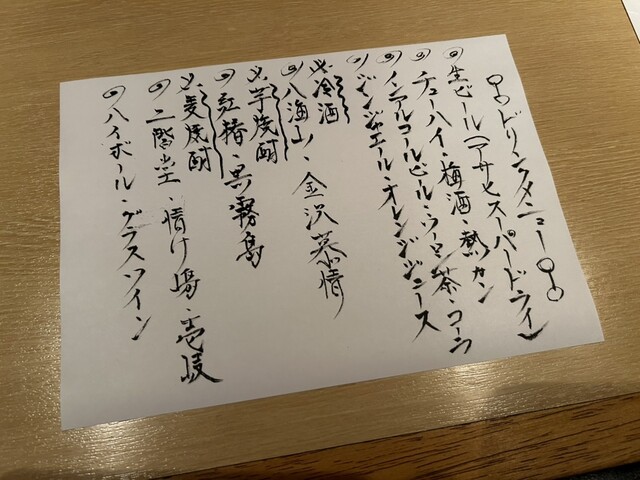 ドリンクメニュー
◎生ビール(アサヒスーパードライ)
◎チューハイ・梅酒・熱カン
◎ノンアルコールビール・ウーロン茶・コーラ
◎ジンジャエール・オレンジジュース
冷酒
◎八海山、金沢慕情
芋焼酎
◎紅椿・黒霧島
麦焼酎
◎二階堂・情け嶋・壱岐
◎ハイボール・グラスワイン